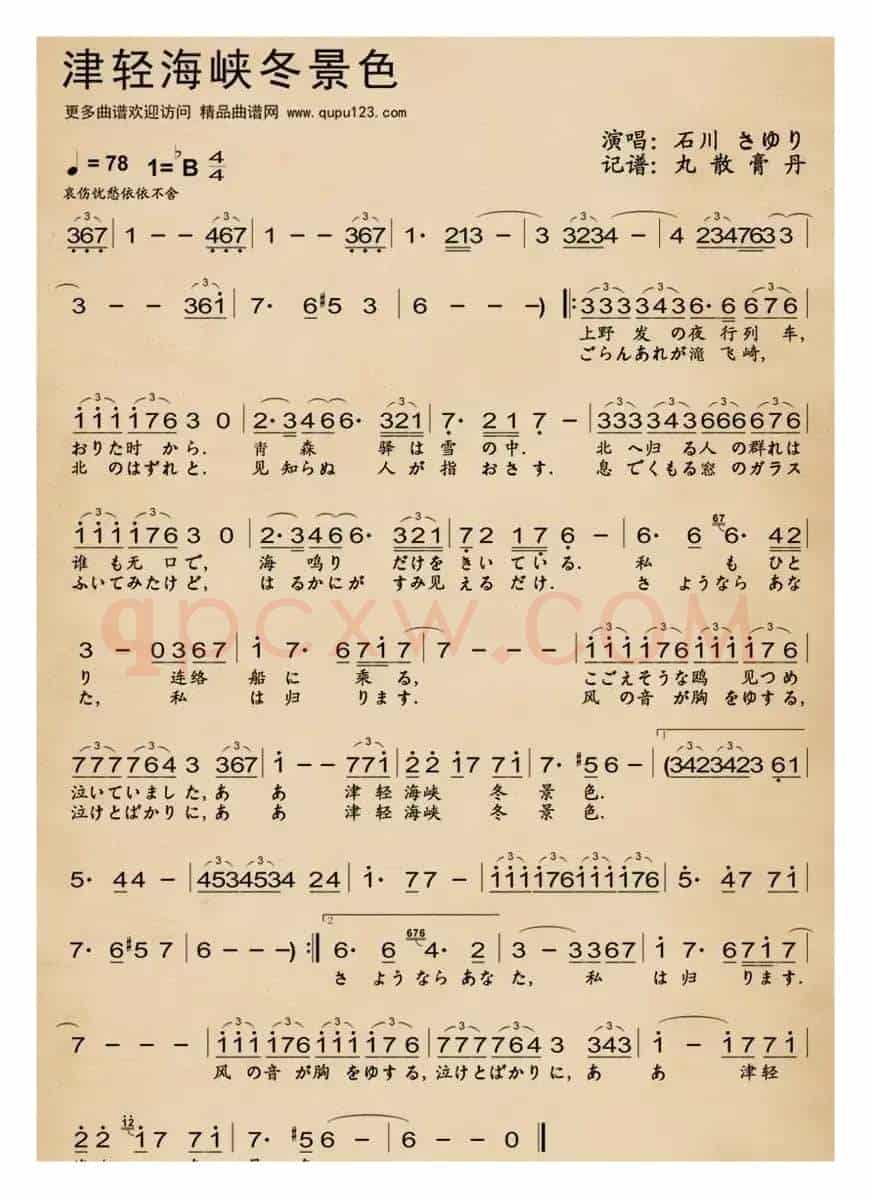 津轻海峡冬景色
更多曲谱欢迎访问 精品曲谱网 www.qupu123.com
演唱: 石川 さゆり
♩=78 1=♭B 4/4
记谱: 丸散膏丹
哀伤忧愁依依不舍
367 | 1 - - 467 | 1 - - 367 | 1· 213 - | 3 3234 - | 4 2347633 |
3 - - 361 | 7· 6#5 3 | 6 - - ) |: 3333436· 6 676 |
上野 发 の夜 行 列 车,
ごらんあれが滝 飞 崎,
111117630 | 2· 3466· 321 | 7· 21 7 - | 333343666676 |
おりた时 から. 青 森 驿 は 雪 の 中. 北 へ归 る 人 の 群れは
北 のはずれと. 见 知らぬ 人 が 指 おさす. 息 でくもる窓 のガラス
1111176 3 0 | 2· 3466· 321 | 72 17 6 - | 6· 67 6· 42 |
谁 も无 口で, 海 鸣り だけを きい て いる. 私 も ひと
ふいてみたけど, はるかにが すみ见 えるだけ. さ ようなら あな
3 - 0367 | 1 7· 6717 | 7 - - - | 111176111176 |
り 连络 船 に 乘 る, こごえそうな鸥 见つめ
た, 私 は 归 ります. 风 の 音 が胸 をゆする,
777764 3 367 | 1 - - 771 | 22 17 71 | 7· #56 - | 1 (3423423 61 |
泣いていました,あ あ 津 轻 海峡 冬 景 色.
泣けとばかりに,あ あ 津 轻 海峡 冬 景 色.
5· 44 - | 4534534 24 | 1· 77 - | 111176111176 | 5· 47 71 |
7· 6#57 | 6 - - - ) :| 2 6· 6 676 4· 2 | 3 - 3367 | 1 7· 6717 |
さ ようなら あな た, 私 は归 ります.
7 - - - | 111176111176 | 777764 3 343 | 1 - 1771 |
风 の 音 が胸 をゆする,泣けとばかりに, あ あ 津轻
22 12 17 71 | 7· #56 - | 6 - - 0 ‖
qpcxw.COM